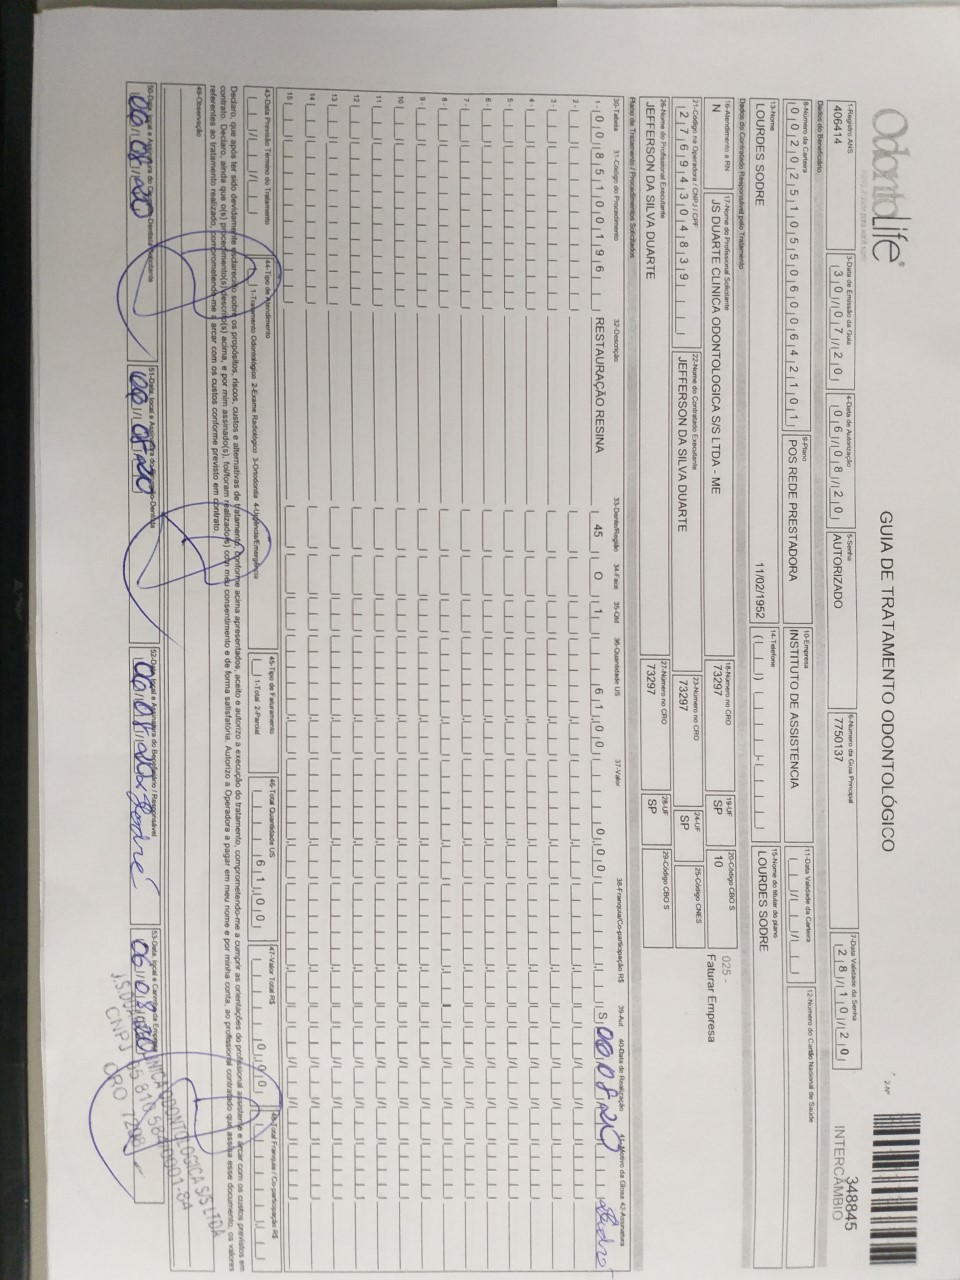 OdontoLife®
GUIA DE TRATAMENTO ODONTOLÓGICO
2-Nº
348845
INTERCÂMBIO
1-Registro ANS
406414
3-Data de Emissão da Guia
30/07/20
4-Data de Autorização
06/08/20
5-Senha
AUTORIZADO
6-Número da Guia Principal
7750137
7-Data Validade da Senha
28/10/20
Dados do Beneficiário
8-Número da Carteira
00202510550600642101
9-Plano
POS REDE PRESTADORA
10-Empresa
INSTITUTO DE ASSISTENCIA
11-Data Validade da Carteira
12-Número do Cartão Nacional de Saúde
13-Nome
LOURDES SODRE
11/02/1952
14-Telefone
15-Nome do titular do plano
LOURDES SODRE
Dados do Contratado Responsável pelo Tratamento
16-Atendimento a RN
N
17-Nome do Profissional Solicitante
JS DUARTE CLINICA ODONTOLOGICA S/S LTDA - ME
18-Número no CRO
73297
19-UF
SP
20-Código CBO S
10
025 -
Faturar Empresa
21-Código na Operadora / CNPJ / CPF
27694304839
22-Nome do Contratado Executante
JEFFERSON DA SILVA DUARTE
23-Número no CRO
73297
24-UF
SP
25-Código CNES
26-Nome do Profissional Executante
JEFFERSON DA SILVA DUARTE
27-Número no CRO
73297
28-UF
SP
29-Código CBO S
Plano de Tratamento / Procedimentos Solicitados
30-Tabela 31-Código do Procedimento 32-Descrição 33-Dente/Região 34-Face 35-Qtd 36-Quantidade US 37-Valor 38-Franquia/Co-participação R$ 39-Aut 40-Data de Realização 41-Motivo da Glosa 42-Assinatura
1- 00 85100196 RESTAURAÇÃO RESINA 45 O 1 61,00 0,00 S 06 08 20
2-
3-
4-
5-
6-
7-
8-
9-
10
11
12
13
14
15
43-Data Previsão Término do Tratamento
44-Tipo de Atendimento
1-Tratamento Odontológico 2-Exame Radiológico 3-Ortodontia 4-Urgência/Emergência
45-Tipo de Faturamento
1-Total 2-Parcial
46-Total Quantidade US
61,00
47-Valor Total R$
0,00
48-Total Franquia / Co-participação R$
Declaro, que após ter sido devidamente esclarecido sobre os propósitos, riscos, custos e alternativas de tratamento, conforme acima apresentados, aceito e autorizo a execução do tratamento, comprometendo-me a cumprir as orientações do profissional assistente e arcar com os custos previstos em
contrato. Declaro, ainda que o(s) procedimento(s) descrito(s) acima, e por mim assinado(s), foi/foram realizado(s) com meu consentimento e de forma satisfatória. Autorizo a Operadora a pagar em meu nome e por minha conta, ao profissional contratado que assina esse documento, os valores
referentes ao tratamento realizado, comprometendo-me a arcar com os custos conforme previsto em contrato.
49-Observação
06/08/20
06/08/20
06/08/20 Sodré
06/08/20